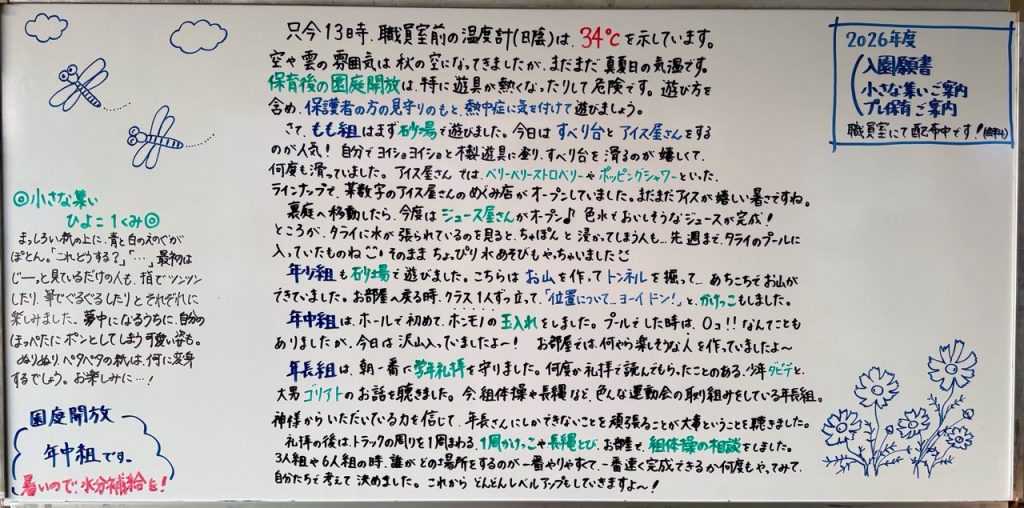 只今13時、職員室前の温度計(日陰)は、34℃を示しています。
空や雲の雰囲気は秋の空になってきましたが、まだまだ真夏日の気温です。
保育後の園庭開放は、特に遊具が熱くなったりして危険です。遊び方を
含め、保護者の方の見守りのもと、熱中症に気を付けて遊びましょう。
さて、もも組はまず砂場で遊びました。今日はすべり台とアイス屋さんをする
のが人気！自分でヨイショヨイショと木製遊具に登り、すべり台を滑るのが嬉しくて、
何度も滑っていました。アイス屋さんでは、ベリーベリーストロベリーやポッピングシャワーといった、
ラインナップで、某数字のアイス屋さんのめぐみ店がオープンしていました。まだまだアイスが嬉しい暑さですね。
裏庭へ移動したら、今度はジュース屋さんがオープン♪色水でおいしそうなジュースが完成！
ところが、タライに水が張られているのを見ると、ちゃぽんと浸かってしまう人も…先週まで、タライのプールに
入っていたものね そのままちょっぴり水あそびもやっちゃいました
年少組も砂場で遊びました。こちらはお山を作ってトンネルを掘って…あちこちでお山が
できていました。お部屋へ戻る時、クラス1人ずつ立って、「位置について…ヨーイドン！」と、かけっこもしました。
年中組は、ホールで初めて、ホンモノの玉入れをしました。プールでした時は、0コ!!なんてことも
ありましたが、今日は沢山入っていましたよー！ お部屋では、何やら楽しそうな人を作っていましたよ～
年長組は、朝一番に学年礼拝を守りました。何度か礼拝で読んでもらったことのある、少年ダビデと、
大男ゴリアトのお話を聴きました。今、組体操や長縄など、色んな運動会の取り組みをしている年長組。
神様からいただいている力を信じて、年長さんにしかできないことを頑張ることが大事ということを聴きました。
礼拝の後は、トラックの周りを1周まわる、1周かけっこや長縄とび、お部屋で、組体操の相談をしました。
3人組や6人組の時、誰がどの場所をするのが一番やりやすくて、一番速く完成できるか何度もやってみて、
自分たちで考えて決めました。これからどんどんレベルアップをしていきますよ～！
◎小さな集い
ひよこ1くみ◎
まっしろい紙の上に、青と白のえのぐが
ぽとん。「これどうする？」「…」最初は
じーっと見ているだけの人も、指でツンツン
したり、筆でぐるぐるしたりとそれぞれに
楽しみました。夢中になるうちに、自分の
ほっぺたにポンとしてしまう可愛い姿も。
ぬりぬり、ペタペタの紙は、何に変身
するでしょう。お楽しみに…！
園庭開放
年中組です。
暑いので、水分補給を！
2026年度
入園願書
小さな集いご案内
プレ保育ご案内
職員室にて配布中です！(無料)